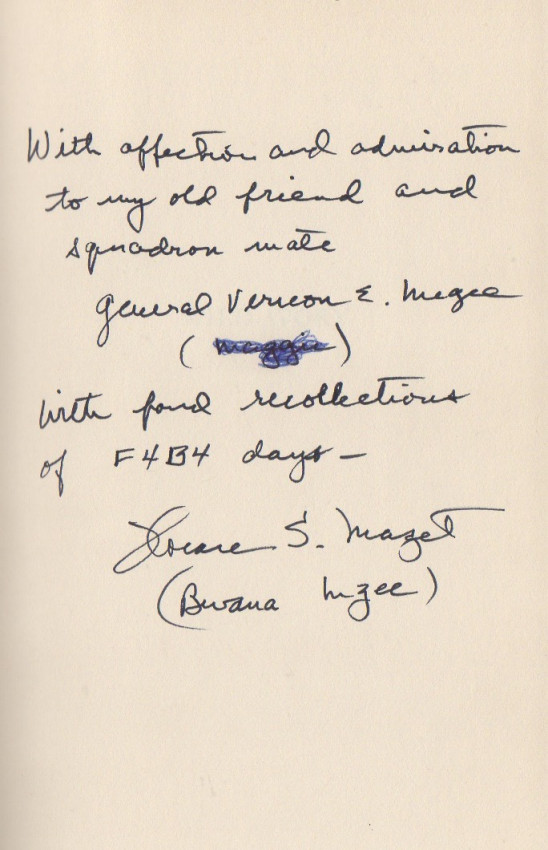 With affection and admiration
to my old friend and
squadron mate
General Vernon E. Megee
(Maggie)
With fond recollections
of F4B4 days—
Horace S. Mazet
(Bwana Mzee)